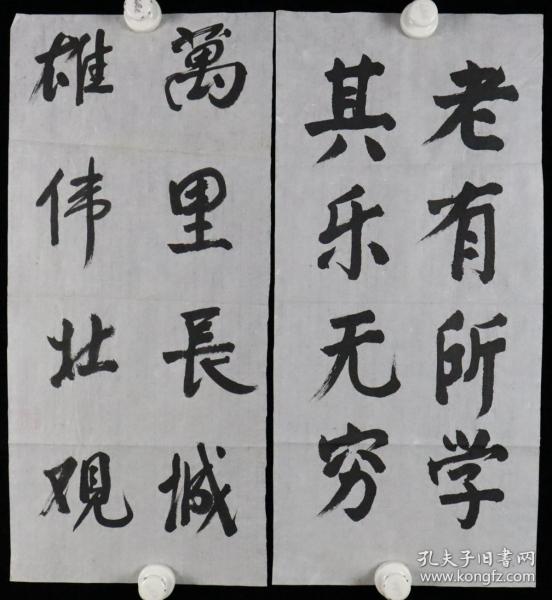 老有所学
其乐无穷
萬里長城
雄伟壮观
孔夫子旧书网
www.kongfz.com